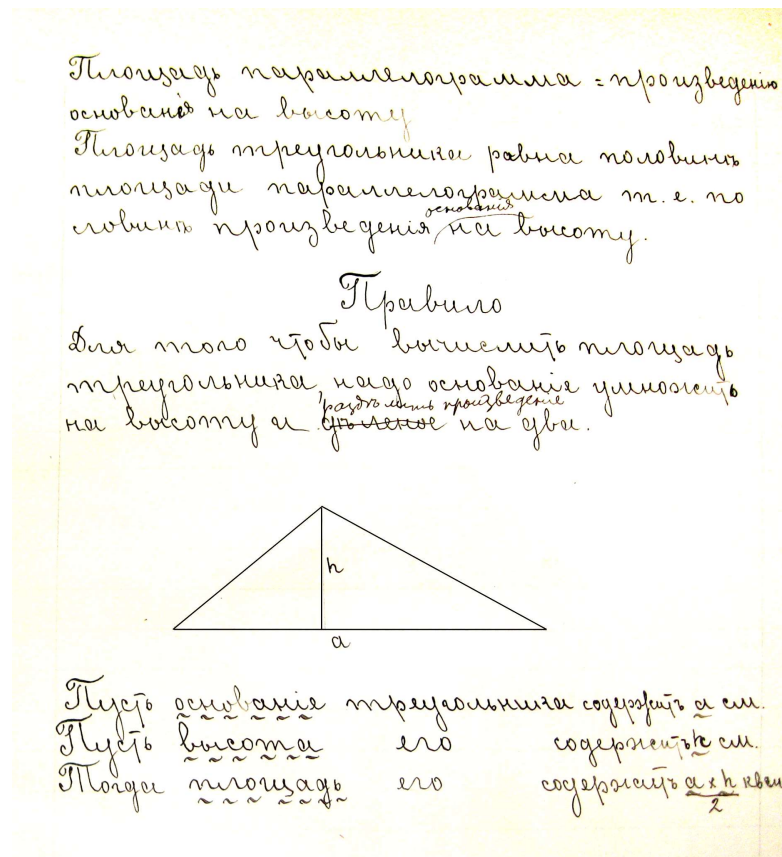 Площадь параллелограмма = произведенію
основанія на высоту
Площадь треугольника равна половинѣ
площади параллелограмма т. е. по
ловинѣ произведенія основанія на высоту.
Правило
Для того чтобы вычислить площадь
треугольника, надо основаніе умножить
на высоту и раздѣлить произведеніе дѣленое на два.
h
a
Пусть основаніе треугольника содержитъ a см.
Пусть высота его содержитъ h см.
Тогда площадь его содержитъ a x h квсм
2